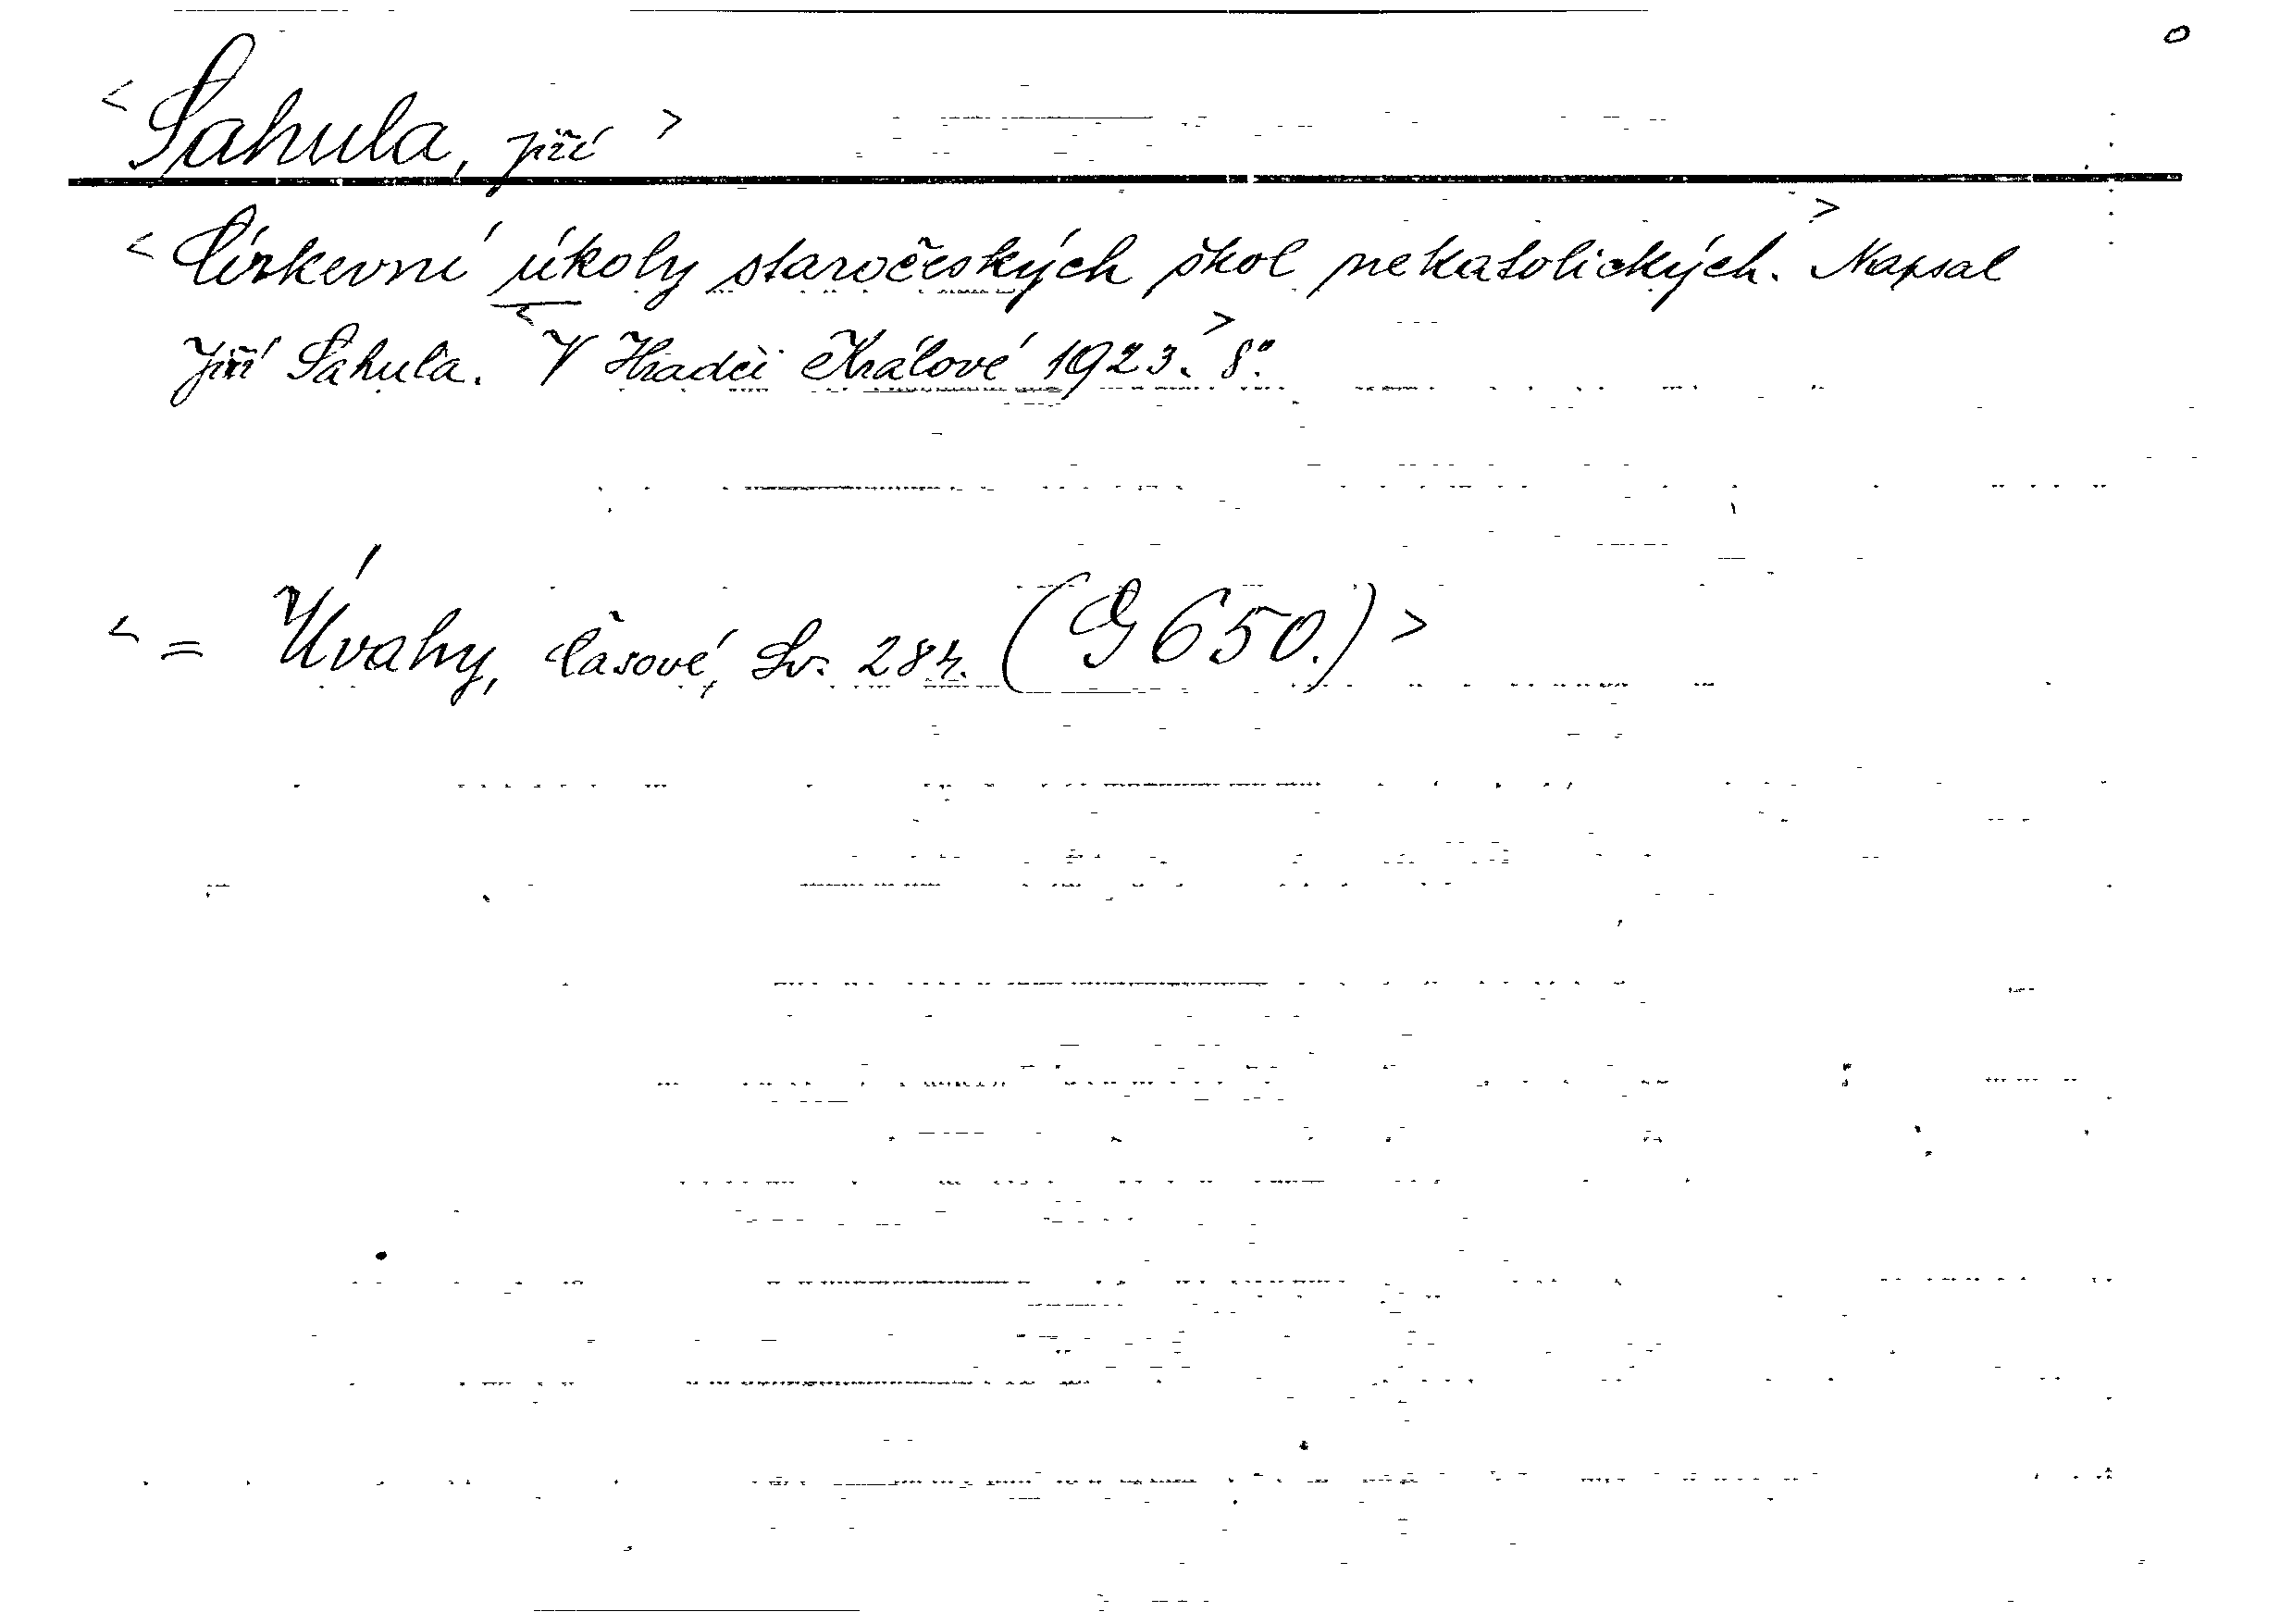 < Sahula, Jiří >
< Církevní úkoly staročeských škol nekatolických. > Napsal
Jiří Sahula. < V Hradci Králové 1923. > 8°.
< = Úvahy, časové, Sv. 284. (G 650.) >